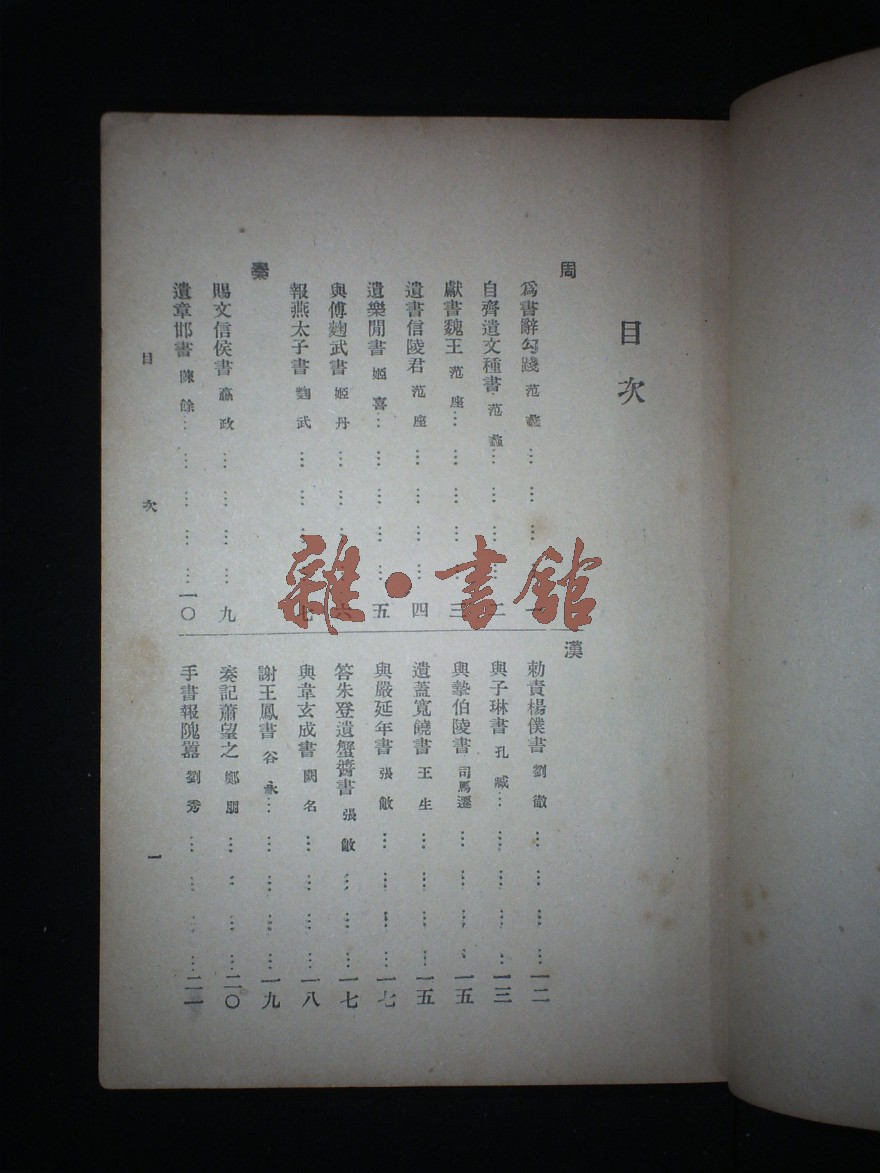 目次
周
為書辭勾踐 范蠡……………一
自齊遺文種書 范蠡……………二
獻書魏王 范座……………三
遺書信陵君 范座……………四
遺樂閒書 姬喜……………五
與傅麴武書 姬丹……………六
報燕太子書 麴武……………七
秦
賜文信侯書 嬴政……………九
遺章邯書 陳餘……………一〇
漢
勅責楊僕書 劉徹……………一二
與子琳書 孔臧……………一三
與摯伯陵書 司馬遷……………一五
遺蓋寬饒書 王生……………一五
與嚴延年書 張敞……………一七
答朱登遺蟹醬書 張敞……………一七
與韋玄成書 闕名……………一八
謝王鳳書 谷永……………一九
奏記蕭望之 鄭朋……………二〇
手書報隗囂 劉秀……………二一
目次 一
雜·書館